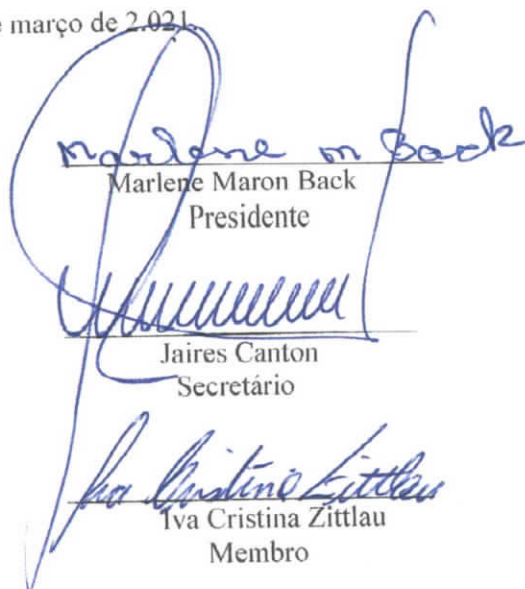 e março de 2.021.
Marlene m Back
Marlene Maron Back
Presidente
Jaires Canton
Secretário
Iva Cristina Zittlau
Iva Cristina Zittlau
Membro